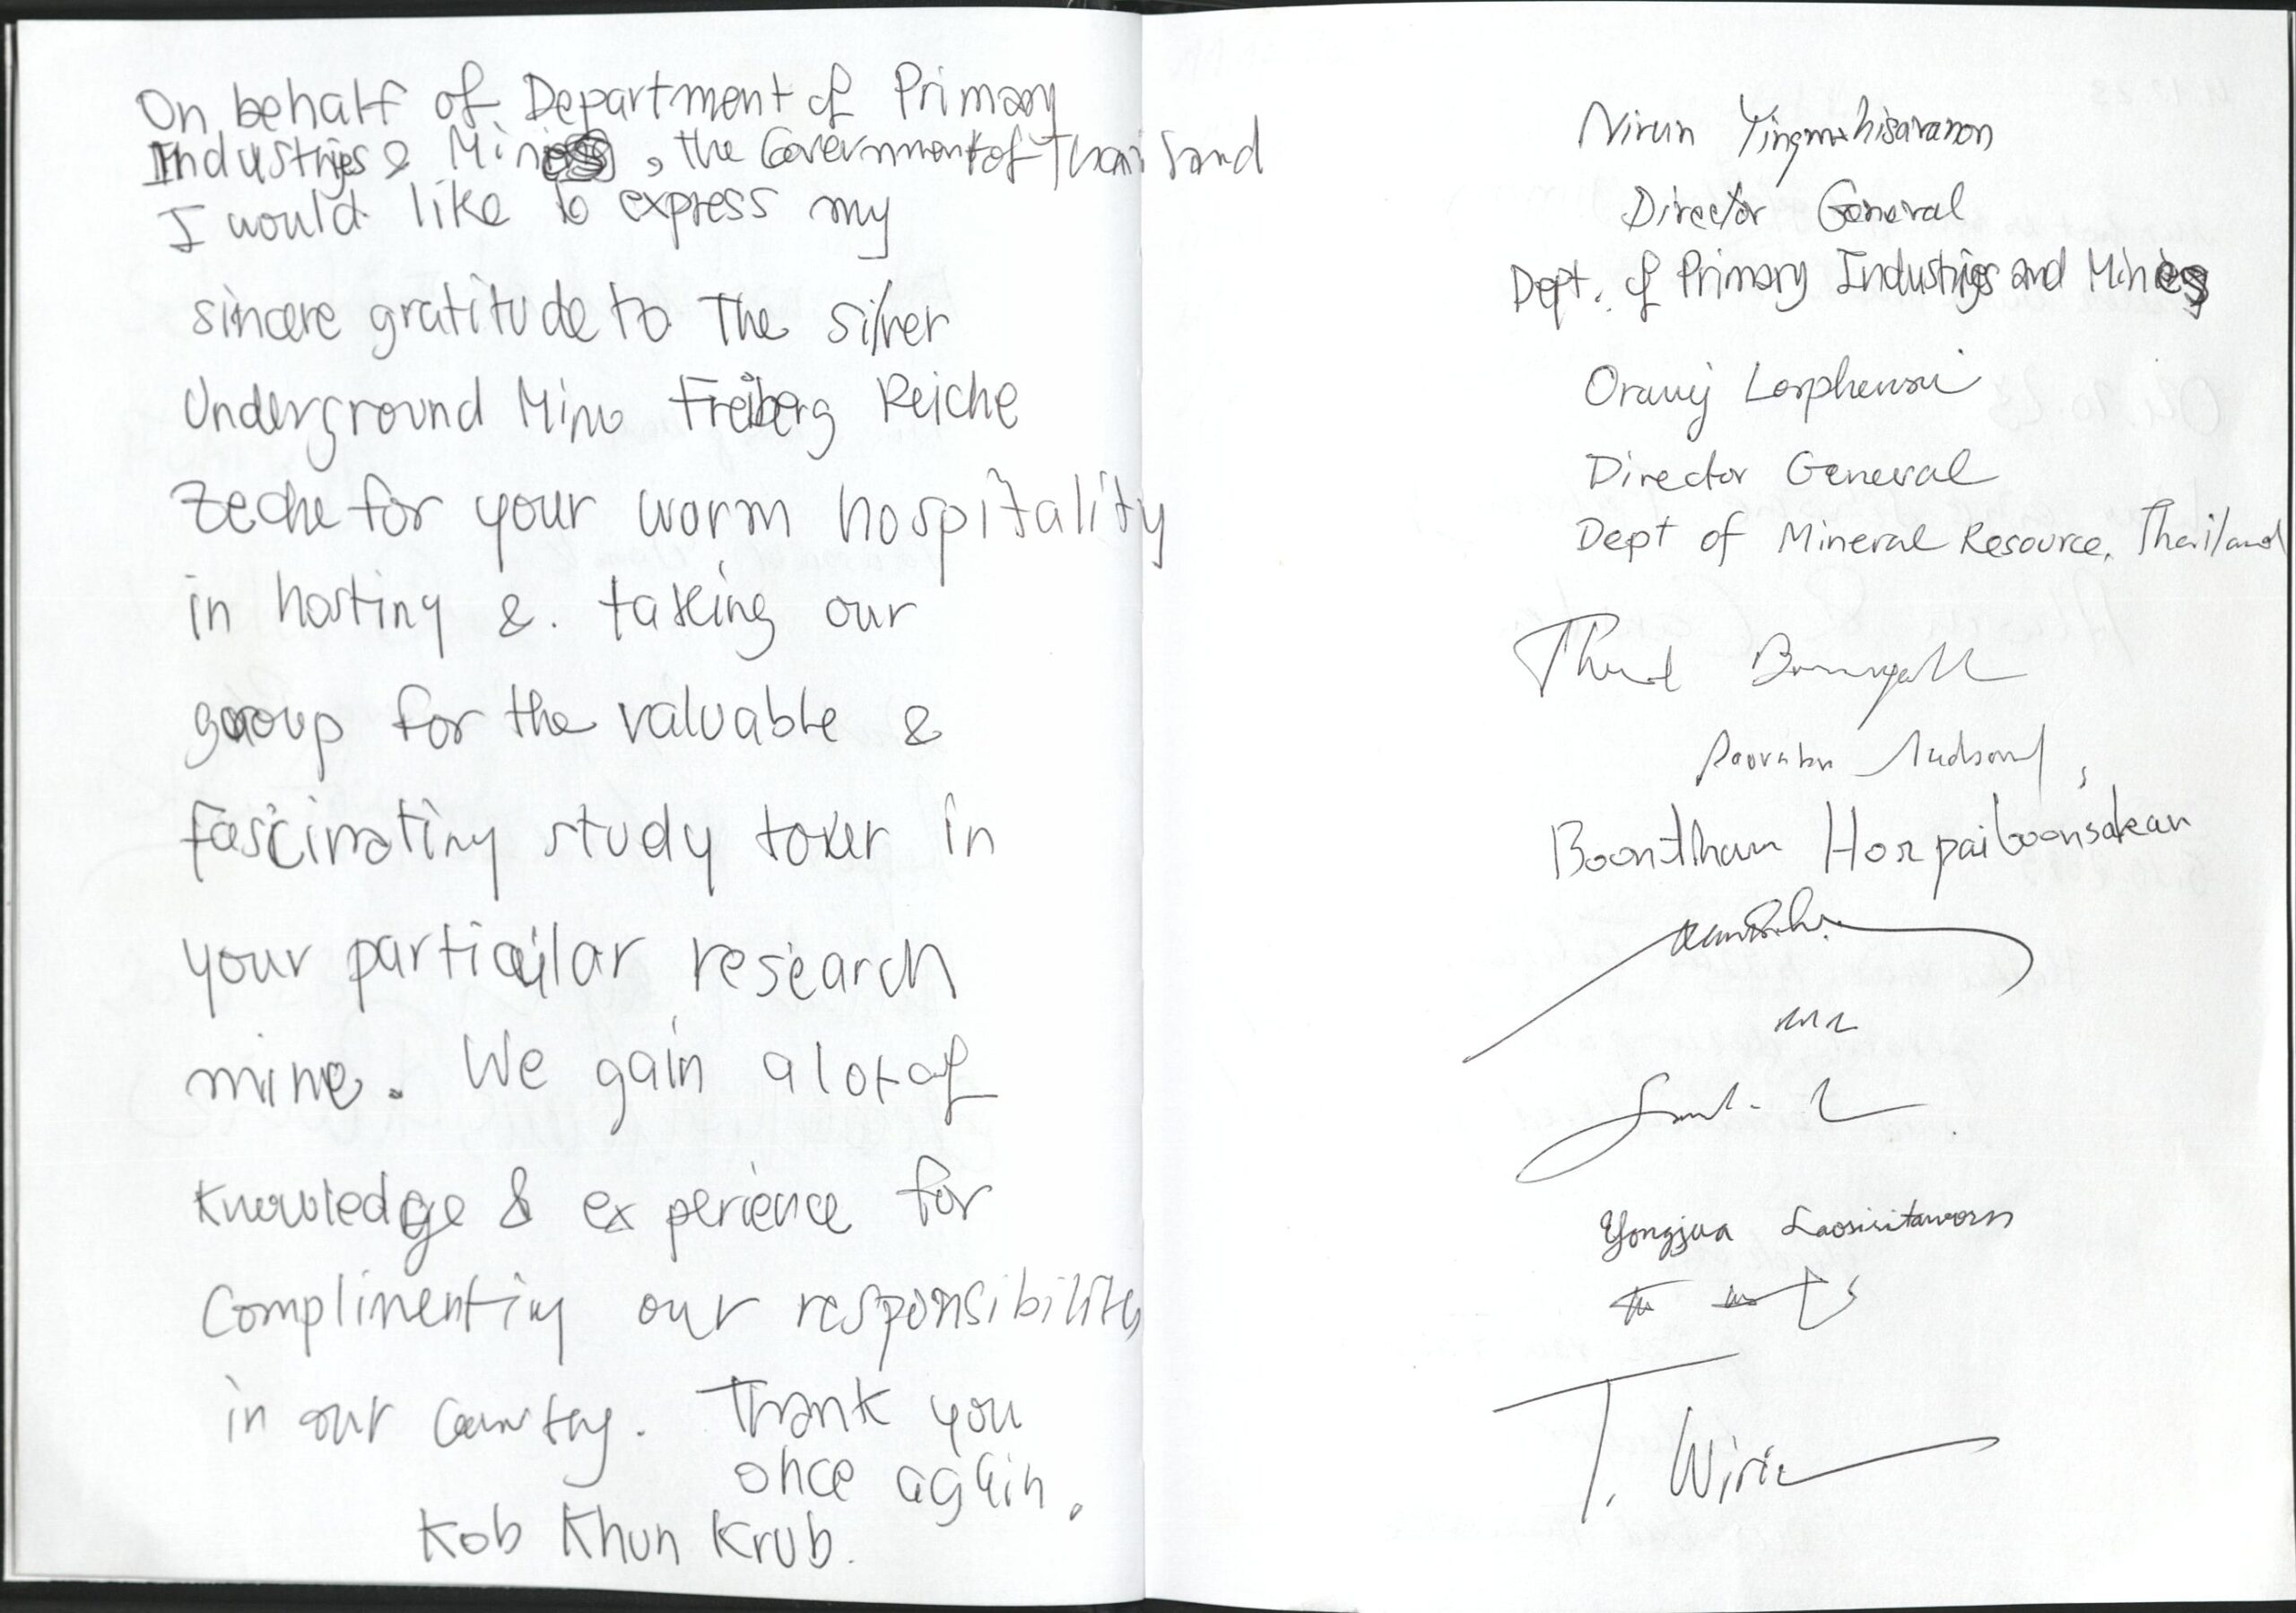 On behalf of Department of Primary
Industries & Mines, the Government of Thailand
I would like to express my
sincere gratitude to The silver
Underground Mine Freiberg Reiche
Zeche for your warm hospitality
in hosting & taking our
group for the valuable &
fascinating study toker in
your particular research
mine. We gain a lot of
knowledge & experience for
Complimenting our responsibility
in our Country. Thank you
once again.
Kob Khun Krub.
Nirun Yingmahisaranon
Director General
Dept. of Primary Industries and Mines
Director General
Dept of Mineral Resource, Thailand
Boontham Horpaiboonsakean
Yongjua Laosiritaworn
T. Wiri